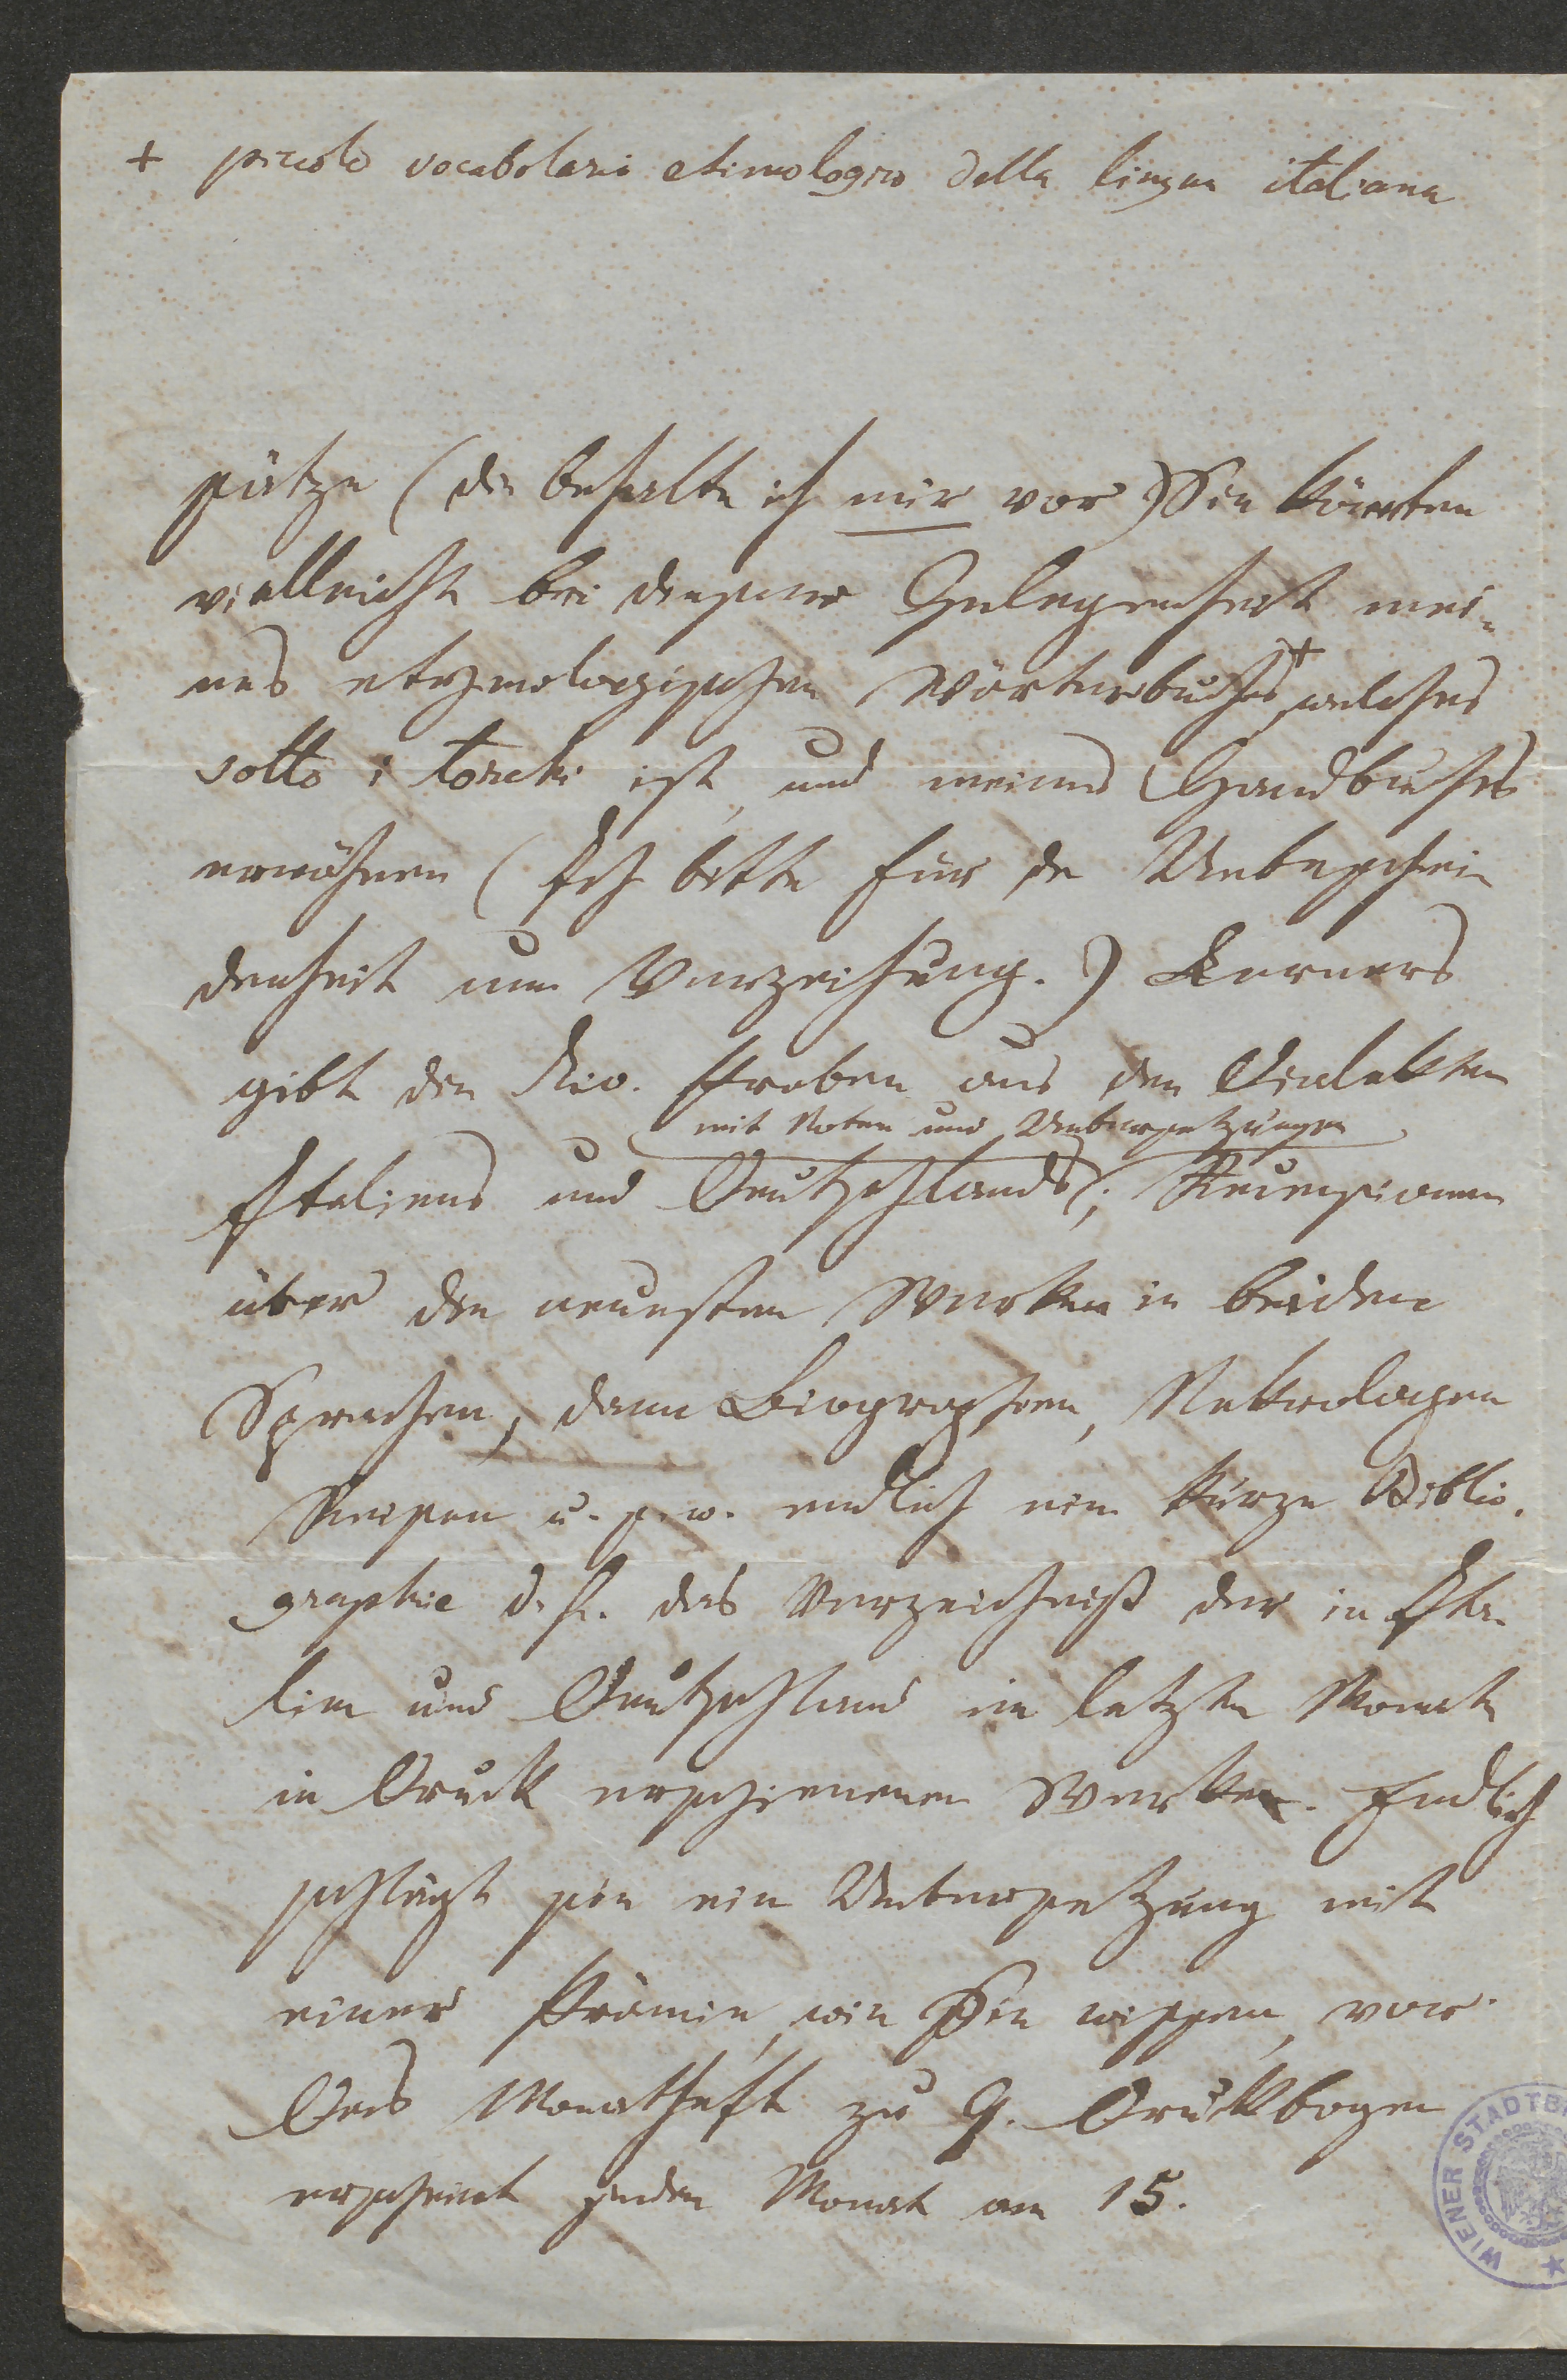 + piccolo vocabolario etimologico della lingua italiana
sätze (die behalte ich mir vor) Sie könnten
vielleicht bei dieser Gelegenheit mei-
nes etymologischen Wörterbuches+, welches
sotto i torchi ist, und meines Handbuches
erwähnen (Ich bitte für die Unbeschei-
denheit um Verzeihung.) Ferners
gibt die Riv. Proben aus den Dialekten
mit Noten und Uebersetzungen
Italiens und Deutschlands; Recensionen
über die neuesten Werke in beiden
Sprachen, dann Biographien, Nekrologen
Reisen u. s. w. endlich eine kurze Biblio-
graphie d. h. das Verzeichniß der in Ita-
lien und Deutschland im letzten Monate
in Druck erschienenen Werke. Endlich
schlägt sie eine Uebersetzung mit
einer Prämie, wie Sie wissen, vor.
Das Monatheft zu 9. Druckbogen
erscheint jeden Monat am 15.
WIENER STADTB